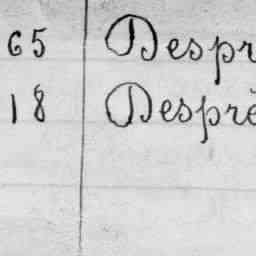 65 Despr
18 Desprè